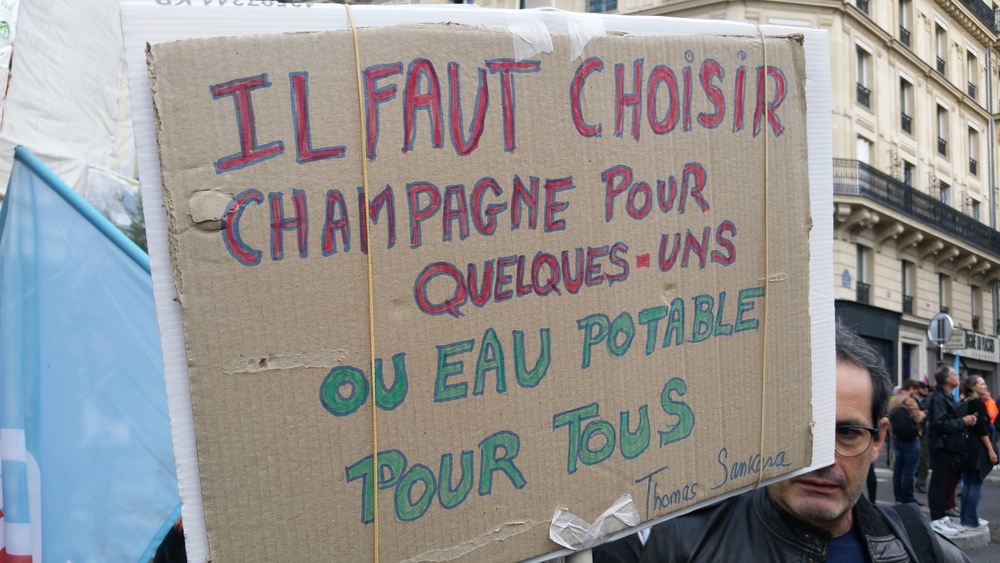 IL FAUT CHOISIR
CHAMPAGNE POUR
QUELQUES-UNS
OU EAU POTABLE
POUR TOUS
Thomas Sankara